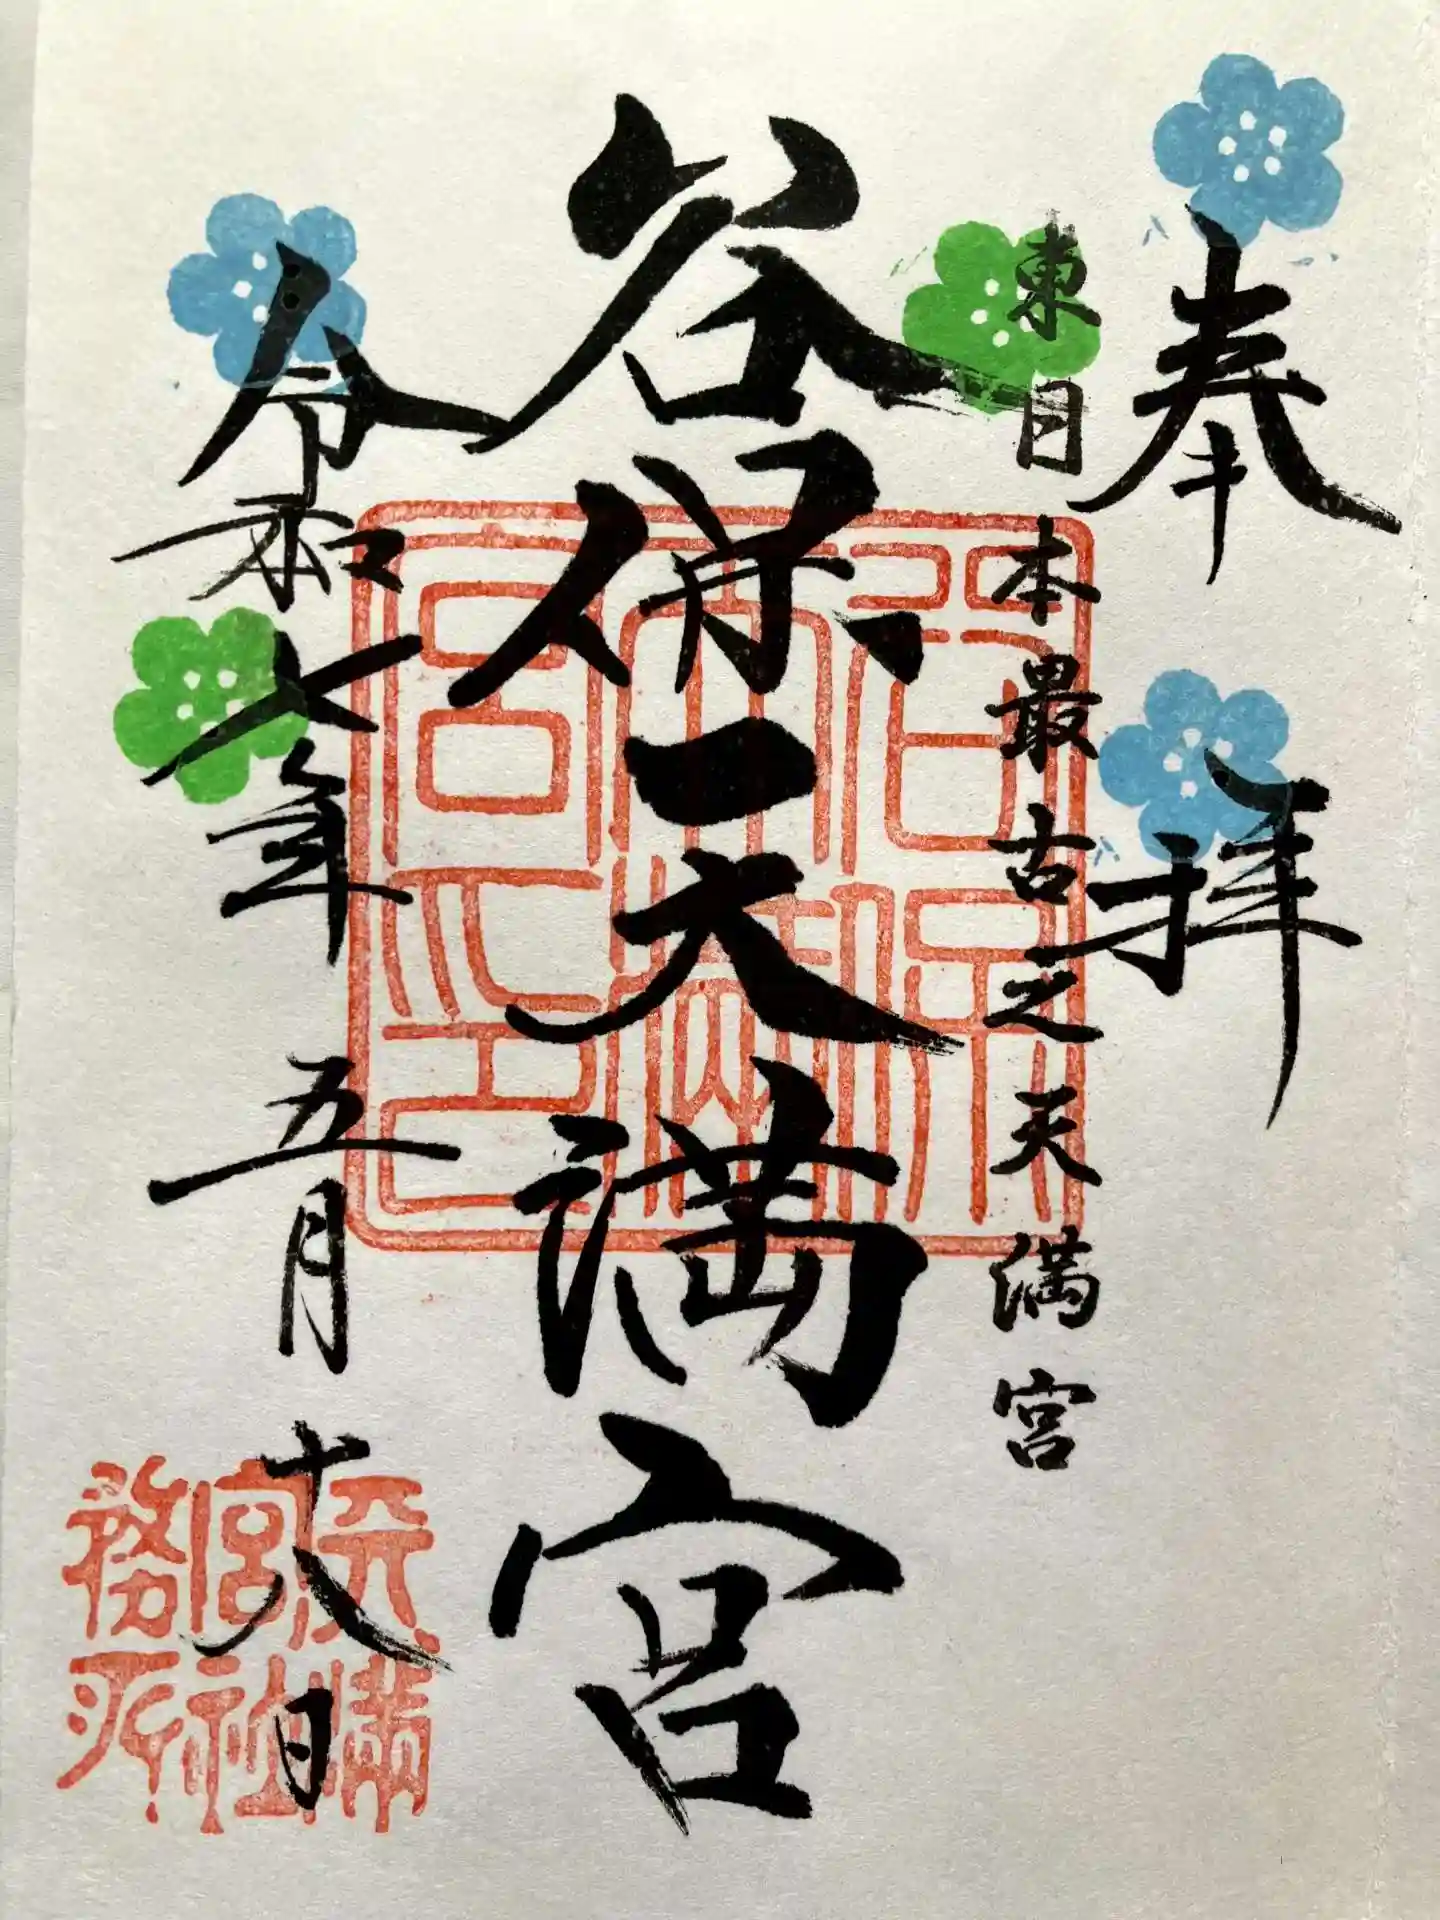 奉拝
東日本最古之天満宮
谷保天満宮
令和七年五月十八日
谷保天満宮之印
天満宮社務所